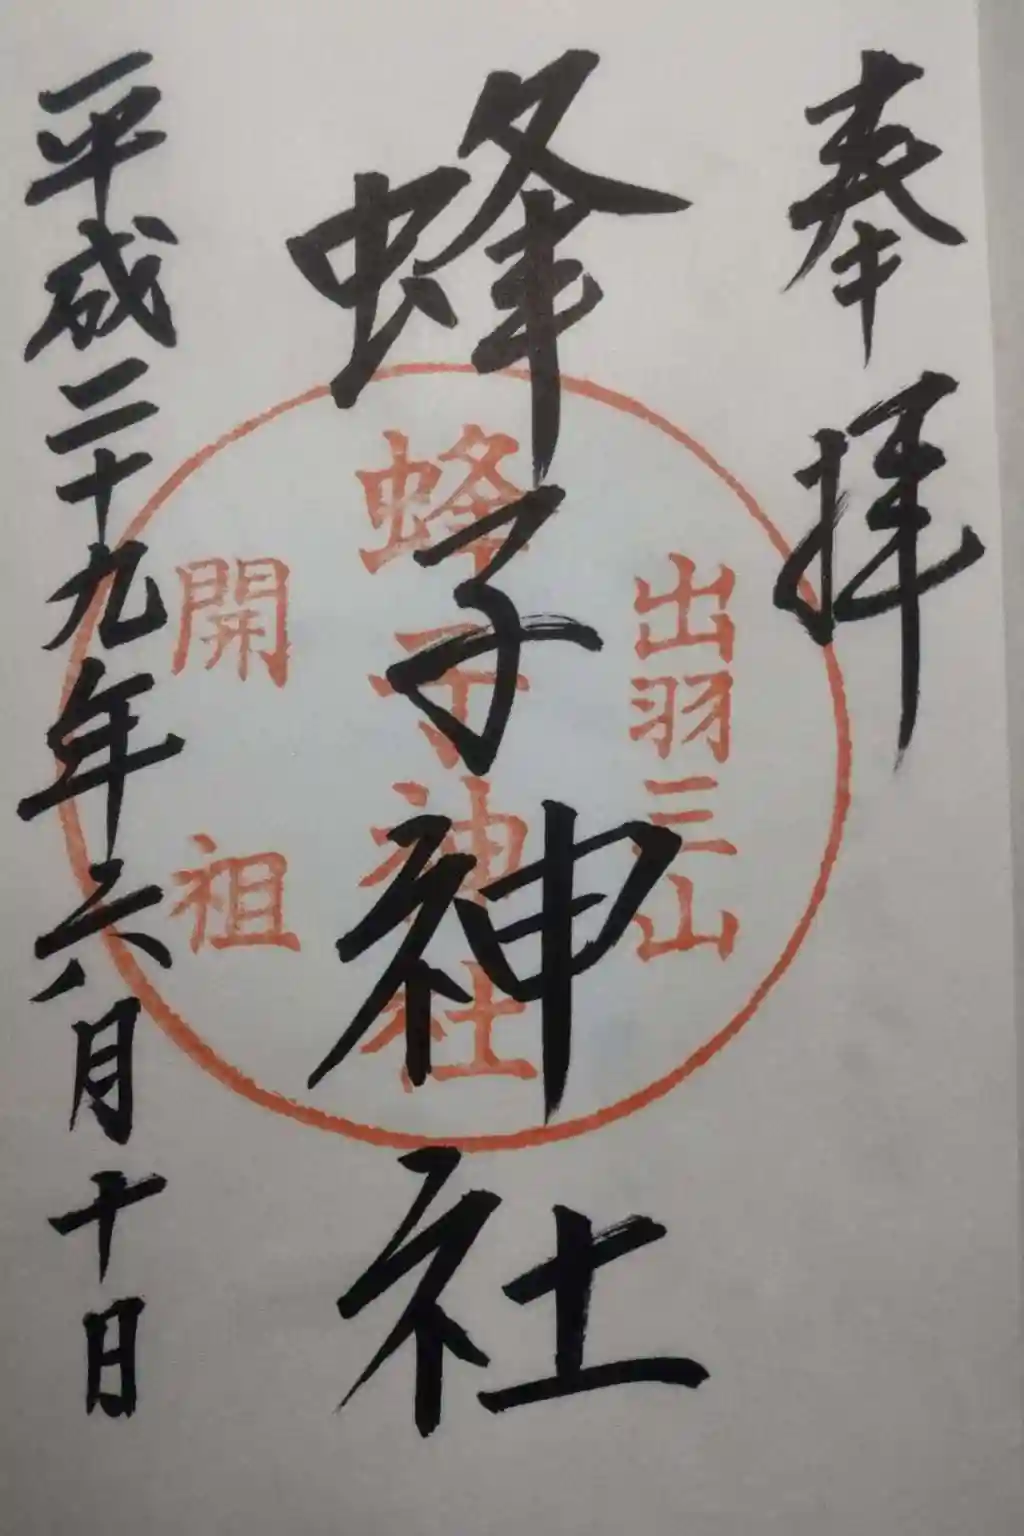 奉拝
蜂子神社
平成二十九年六月十日
出羽三山
蜂子神社
開祖